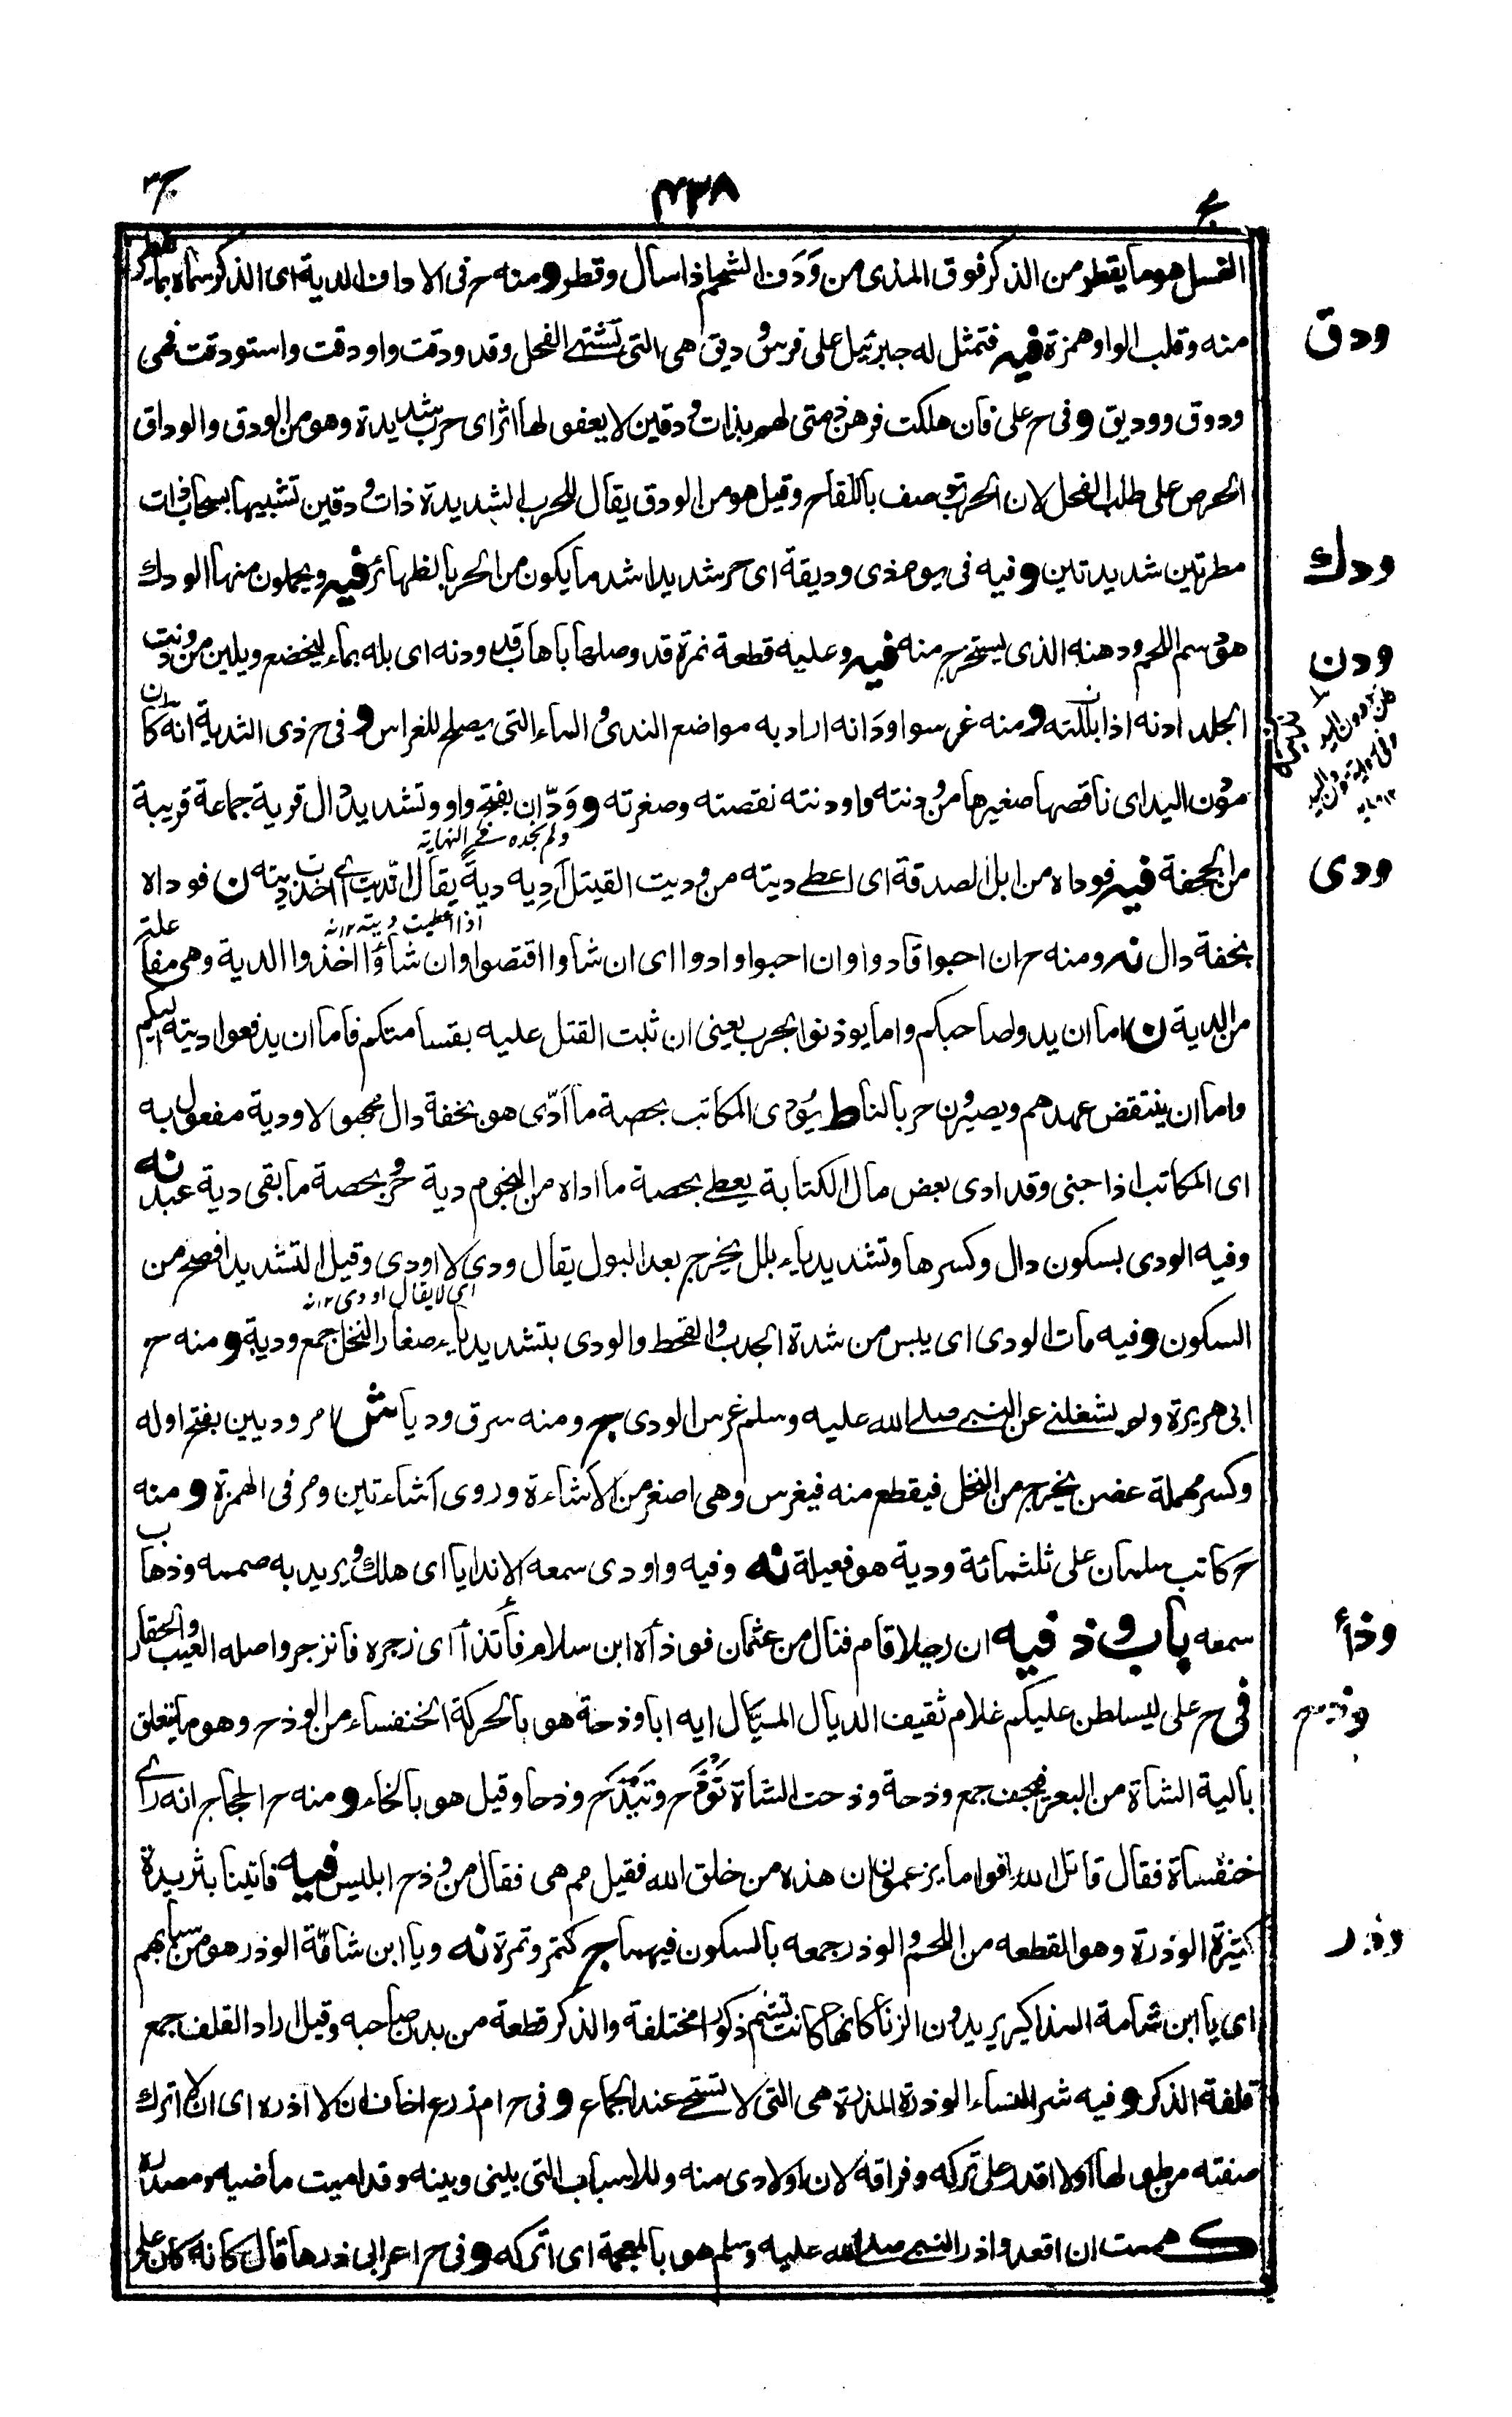 ج٣
٤٣٨
الغسل هو ما يقطر من الذكر فوق المذى من وَدَف الشحم اذا سال وقطر ومنه ح فى الاداف الدية اى الذكر سماه بما يقطر
منه وقلب الواو همزة فيه فتمثل له جبرئيل على فرس وديق هى التى تشتهى الفحل وقد ودقت واودقت واستودقت فهى
ودق
ودوق ووديق وفى ح على فان هلكت فرهن ذمتى لهم بذات ودقين لا يعفو لها اثر اى حرب شديدة وهو من الودق والوداق
الحرص على طلب الفحل لان الحرب توصف باللقاح وقيل هو من الودق يقال للحرب الشديدة ذات ودقين تشبيها بسحاب ذات
مطرتين شديدتين وفيه فى يوم ذى وديقة اى حر شديد اشد ما يكون من الحر بالظهائر فيه ويحملون منها الودك
ودك
هو دسم اللحم ودهنه الذى يستخرج منه فيه وعليه قطعة نمرة قد وصلها باهاب قد ودنه اى بله بماء ليخضع ويلين من ودنت
ودن
الجلد ادنه اذا بللته ومنه غرسوا ودَانه اراد به مواضع الندى والماء التى يصلح للغراس وفى ح ذى الثدية انه كان
مودن اليد اى ناقصها صغيرها من ودنته واودنته نقصته وصغرته وودّان بفتح واو وتشديد دال قرية جماعة قريبة
ولم نجده فى النهاية
من الجحفة فيه فوداه من ابل الصدقة اى اعطى ديته من وديت القتيل آدِيه ديةً يقال اتديت اى اخذت ديته ن فوداه
ودى
اذا اعطيت ديته ١٢ نه
بخفة دال نه ومنه ح ان احبوا قادوا وان احبوا وادوا اى ان شاوا اقتصوا وان شاؤا اخذوا الدية وهى مفاعلة
من الدية ن اما ان يدوا صاحبكم واما يوذنوا بحرب يعنى ان ثبت القتل عليه بقسامتكم فاما ان يدفعوا ديته اليكم
واما ان ينتقض عهدهم ويصيرون حربا لنا ط يُودى المكاتب بحصة ما اَدّى هو بخفة دال مجهولا ودية مفعول به
اى المكاتب اذا جنى وقد ادى بعض مال الكتابة يعطى بحصة ما اداه من النجوم دية حر وبحصة ما بقى دية عبد نه
وفيه الودى بسكون دال وكسرها وتشديد ياء بلل يخرج بعد البول يقال ودى لا اودى وقيل التشديد افصح من
اى لا يقال اودى ١٢ نه
السكون وفيه مات الودى اى يبس من شدة الجدب والقحط والودى بتشديد ياء صغار النخل جمع ودية ومنه ح
ابى هريرة ولم يشغلنى عن النبى صلى الله عليه وسلم غرس الودى ج ومنه سرق وديا ش امر وديين بفتح اوله
وكسر مهملة غصن يخرج من النخل فيقطع منه فيغرس وهى اصغر من الاشاءة وروى اشاءتين ومر فى الهمزة ومنه
ح كاتب سلمان على ثلثمائة ودية هو فعيلة نه وفيه واودى سمعه الا ندايا اى هلك ويريد به صممه وذهاب
سمعه باب وذ فيه ان رجلا قام فنال من عثمان فوذأه ابن سلام فاتذأ اى زجره فانزجر واصله العيب والحقارة
وذأ
فى ح على ليسلطن عليكم غلام ثقيف الذيال الميّال ايه ابا وذحة هو بالحركة الخنفساء من الوذح وهو ما يتعلق
وذح
بالية الشاة من البعر فيجف جمع وذحة وذحت الشاة توذح وتيذح وذحا وقيل هو بالخاء ومنه ح الحجاج انه راى
خنفساة فقال قاتل الله اقواما يزعمون ان هذه من خلق الله فقيل مم هى فقال من وذح ابليس فيه فاتينا بثريدة
كثيرة الوذرة وهو القطعه من اللحم والوذر جمعه بالسكون فيهما ج كتمر وتمرة نه ويا ابن شامّة الوذر هو من سبابهم
وذر
اى يا ابن شامة المذاكير يريدون الزنا كانها كانت تشم ذكورا مختلفة والذكر قطعة من بدن صاحبه وقيل اراد القلف جمع
قلفة الذكر وفيه شر النساء الوذرة المذرة هى التى لا تستحى عند الجماع وفى ح ام زرع اخاف ان لا اذره اى ان لا اترك
صفته من طولها او لا اقدر على تركه وفراقه لان اولادى منه وللاسباب التى بينى وبينه وقد اميت ماضيه ومصدره
ك هممت ان اقعد واذر النبى صلى الله عليه وسلم هو بالمعجمة اى اتركه وفى ح اعرابى ذرها قال كانه كان على